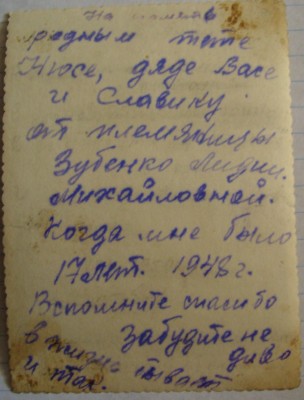 На память
родным тёте
Нюсе, дяде Васе
и Славику
от племяницы
Зубенко Лидии
Михайловной.
Когда мне было
17 лет. 1948 г.
Вспомните спасибо
Забудите не
диво
в жизни бывает
и так.